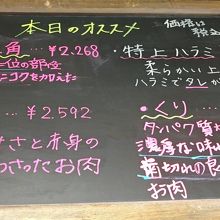 本日のオススメ
価格は
税込
角 … ¥2.268
位の部位
ニコクを加えた
… ¥2.592
さと赤身の
わさったお肉
・特上ハラミ
柔らかい上
ハラミでタレが
・くり…
タンパク質
濃厚な味わ
歯切れの良
お肉